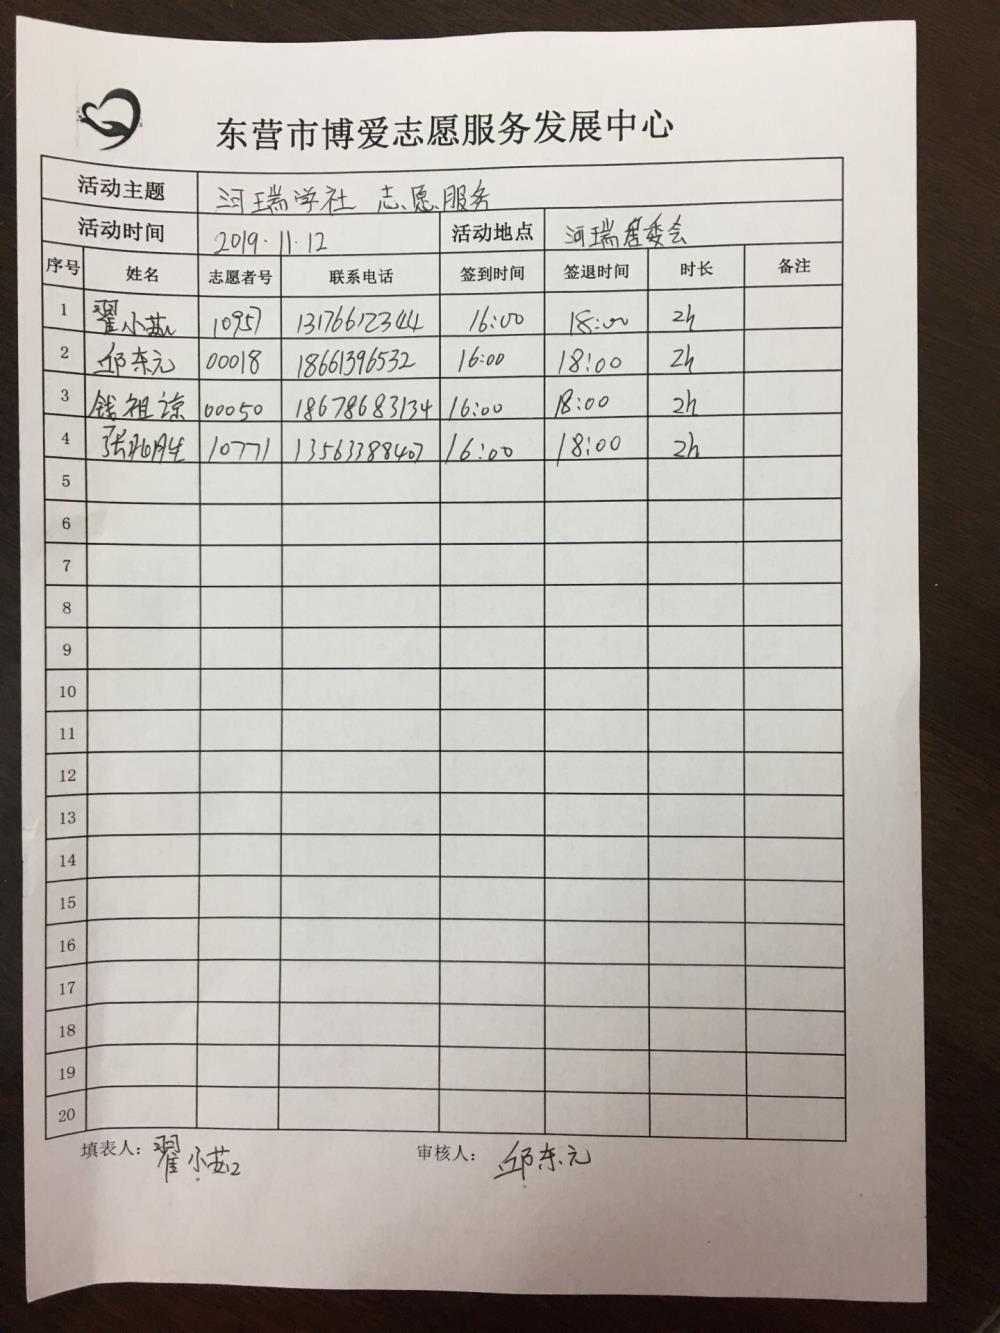 东营市博爱志愿服务发展中心
活动主题 河瑞学社 志愿服务
活动时间 2019.11.12 活动地点 河瑞居委会
序号 姓名 志愿者号 联系电话 签到时间 签退时间 时长 备注
1 翟小茹 10957 13176612344 16:00 18:00 2h
2 邱东元 00018 18661396532 16:00 18:00 2h
3 钱祖谅 00050 18678683134 16:00 18:00 2h
4 张兆胜 10771 13563388407 16:00 18:00 2h
5
6
7
8
9
10
11
12
13
14
15
16
17
18
19
20
填表人：翟小茹 审核人：邱东元